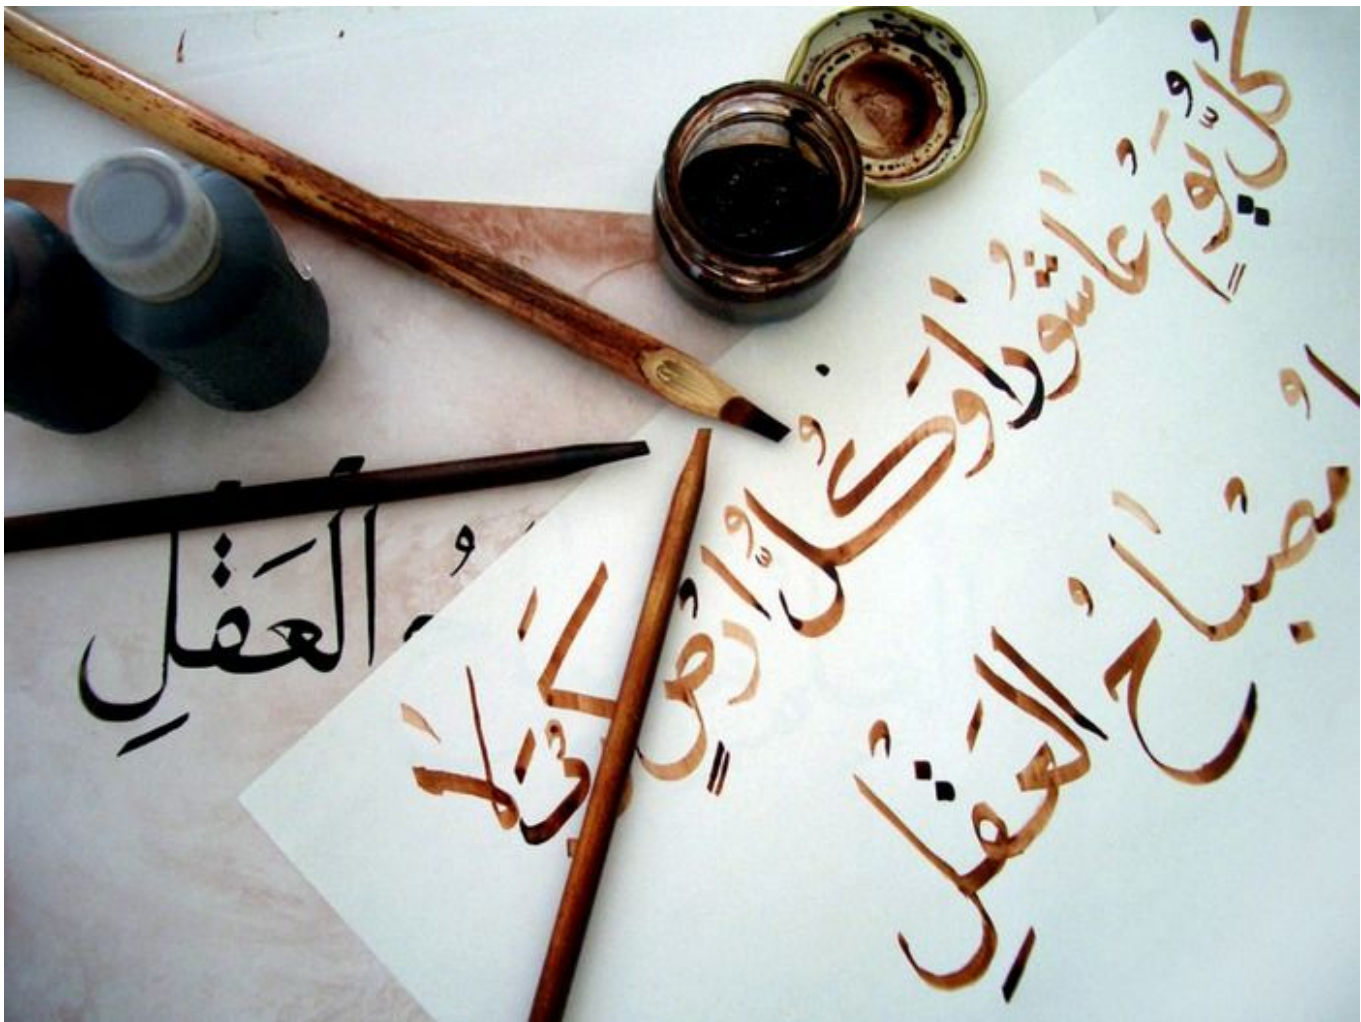 كُلُّ يَومٍ عَاشُورَا وَكُلُّ ارضٍ كَربَلَا
مُصْبَاحُ العَقلِ
العَقلِ